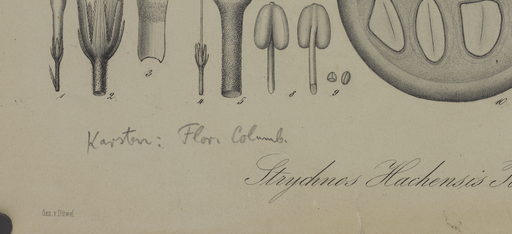 1 2 3 4 5 8 9 10
Karsten: Flor. Columb.
Strychnos Hachensis
Gez. v. Düwel